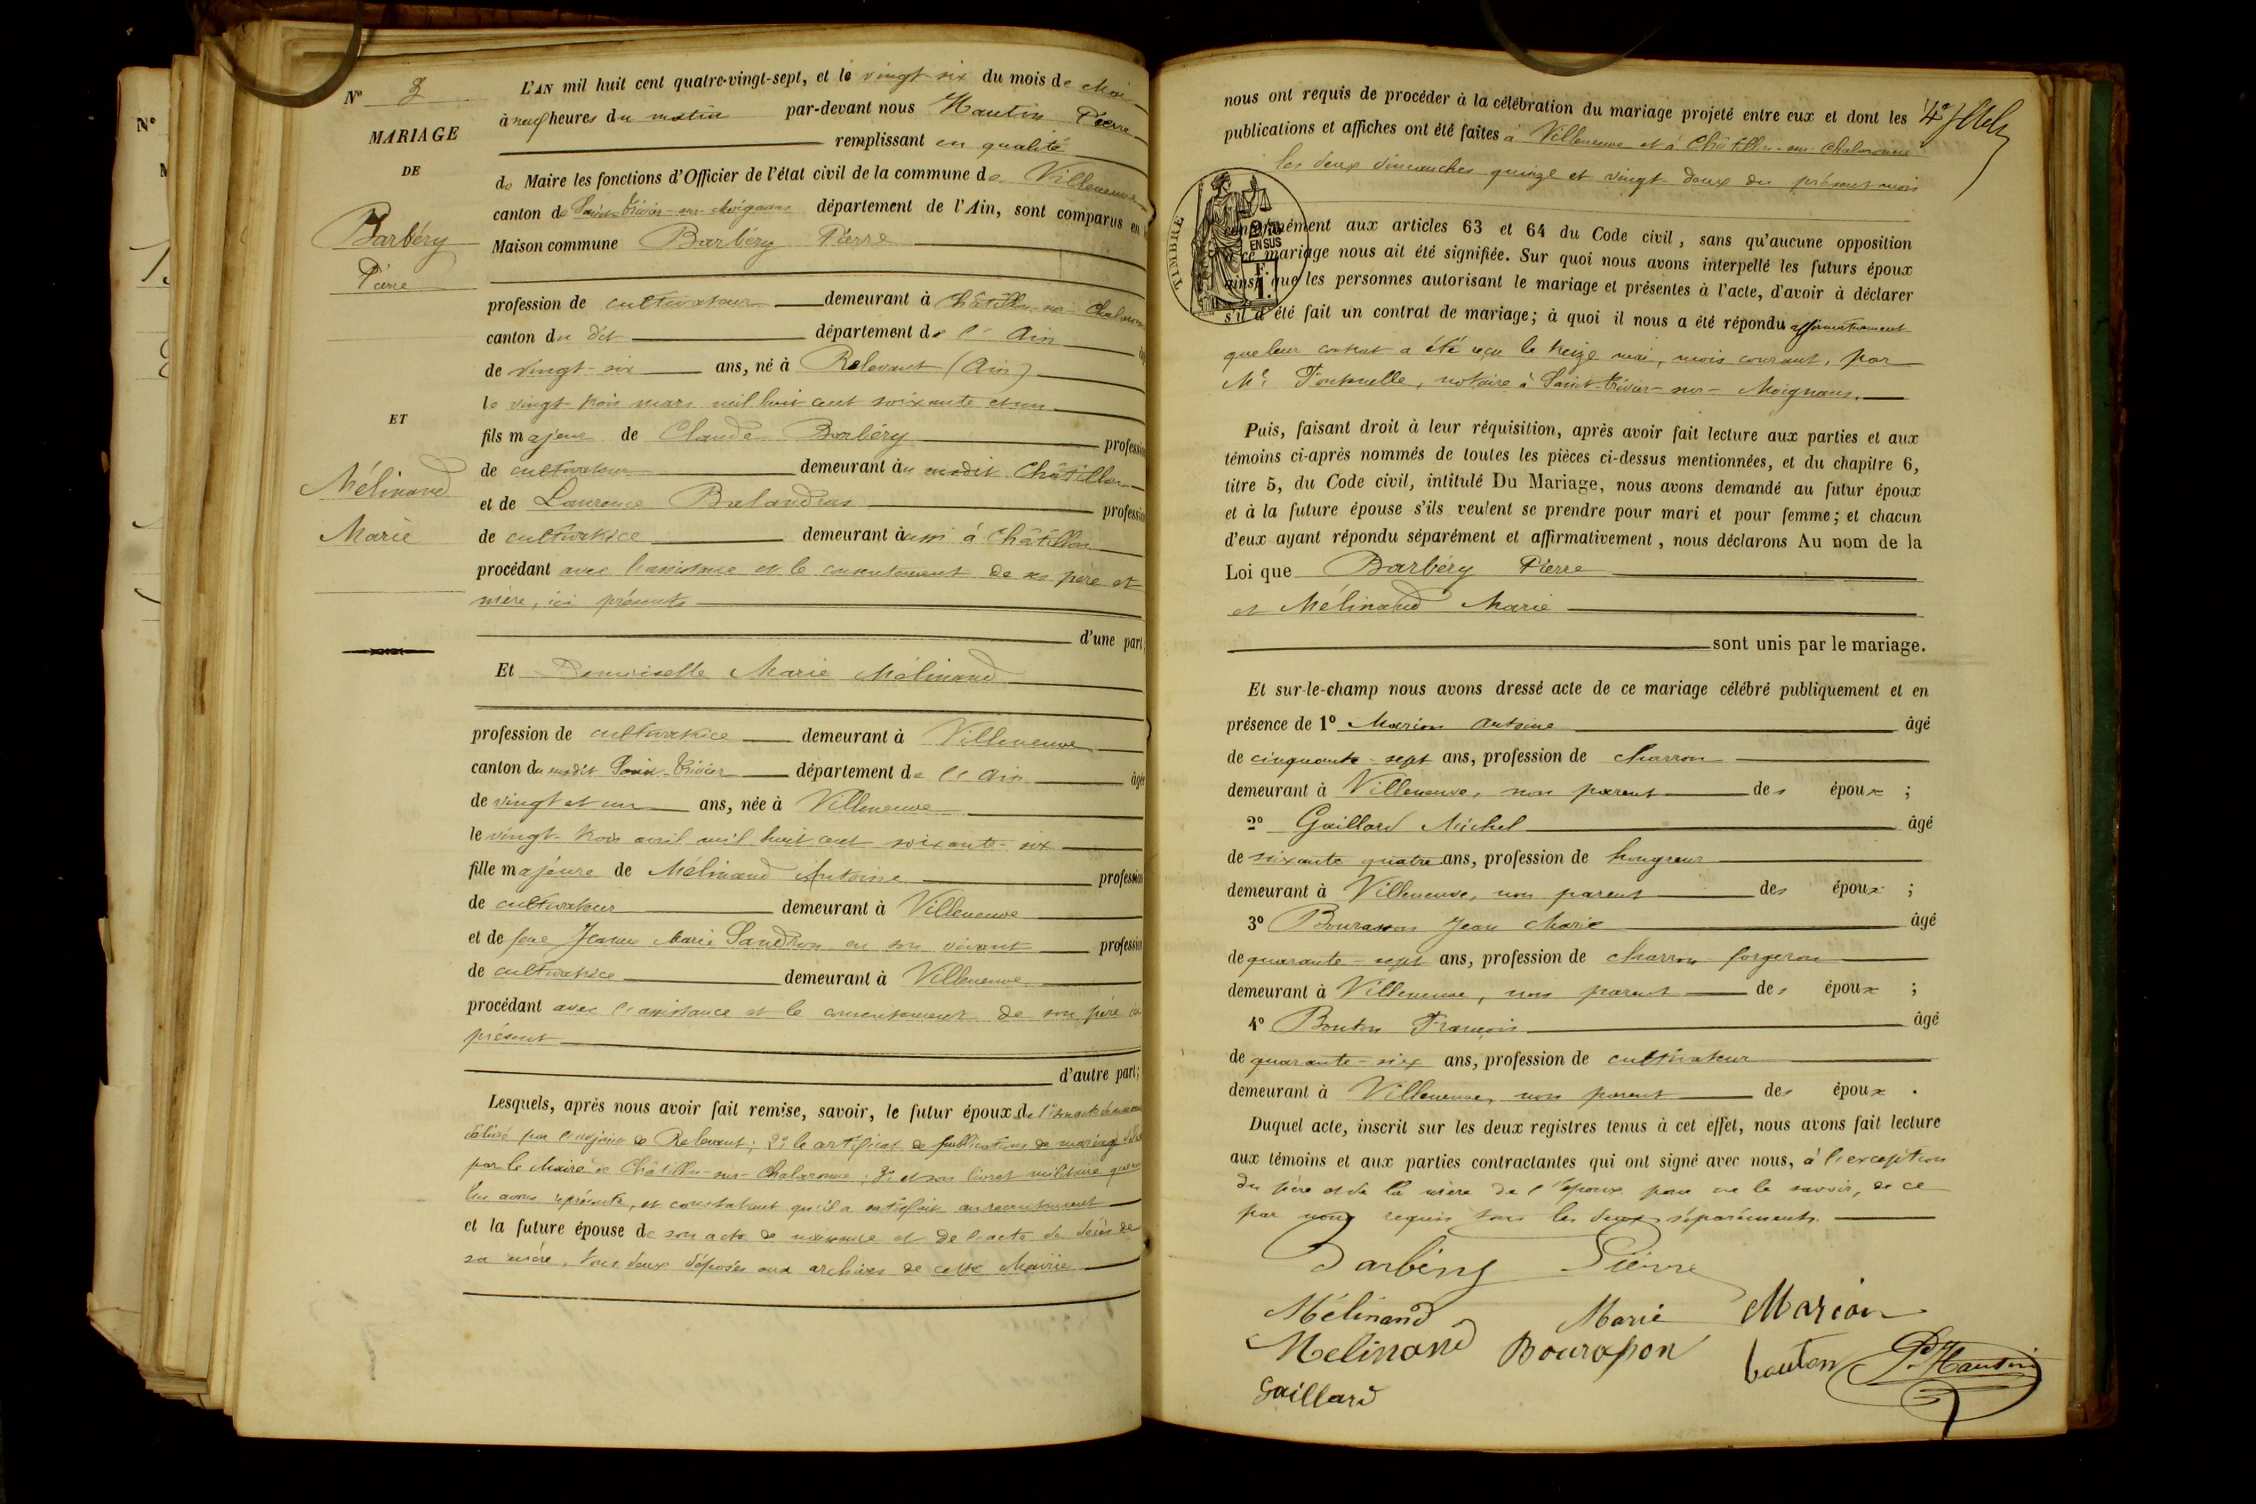 Nº 3
MARIAGE
DE
Barbéry
Pierre
ET
Mélinand
Marie
L'AN mil huit cent quatre-vingt-sept, et le vingt-six du mois de Mai
à neuf heures du matin par-devant nous Hautin Pierre
remplissant en qualité
de Maire les fonctions d'Officier de l'état civil de la commune de Villeneuve
canton de Saint-Trivier-sur-Moignans département de l'Ain, sont comparus en
Maison commune Barbéry Pierre
profession de cultivateur demeurant à Châtillon-sur-Chalaronne
canton du dit département de l'Ain
de vingt-six ans, né à Relevant (Ain)
le vingt-trois mars mil huit cent soixante et un
fils majeur de Claude Barbéry profession
de cultivateur demeurant au susdit Châtillon
et de Laurence Balandras profession
de cultivatrice demeurant aussi à Châtillon
procédant avec l'assistance et le consentement de ses père et
mère, ici présents
d'une part
Et Demoiselle Marie Mélinand
profession de cultivatrice demeurant à Villeneuve
canton du susdit Saint-Trivier département de l'Ain âgée
de vingt et un ans, née à Villeneuve
le vingt-trois avril mil huit cent soixante-six
fille majeure de Mélinand Antoine profession
de cultivateur demeurant à Villeneuve
et de feue Jeanne Marie Sandron en son vivant profession
de cultivatrice demeurant à Villeneuve
procédant avec l'assistance et le consentement de son père ici
présent
d'autre part;
Lesquels, après nous avoir fait remise, savoir, le futur époux de 1º son acte de naissance
délivré par l'adjoint de Relevant; 2º le certificat de publications de mariage délivré
par le Maire de Châtillon-sur-Chalaronne; 3º et son livret militaire
avons représenté, et constatant qu'il a satisfait au recrutement
et la future épouse de son acte de naissance et de l'acte de décès de
sa mère, tous deux déposés aux archives de cette Mairie
nous ont requis de procéder à la célébration du mariage projeté entre eux et dont les
publications et affiches ont été faites à Villeneuve et à Châtillon-sur-Chalaronne
les deux dimanches quinze et vingt-deux du présent mois
4º
TIMBRE
2/10
EN SUS
F.
1.
conformément aux articles 63 et 64 du Code civil, sans qu'aucune opposition
à ce mariage nous ait été signifiée. Sur quoi nous avons interpellé les futurs époux
ainsi que les personnes autorisant le mariage et présentes à l'acte, d'avoir à déclarer
s'il a été fait un contrat de mariage; à quoi il nous a été répondu affirmativement
que leur contrat a été reçu le treize mai, mois courant, par
Me Fontanelle, notaire à Saint-Trivier-sur-Moignans.
Puis, faisant droit à leur réquisition, après avoir fait lecture aux parties et aux
témoins ci-après nommés de toutes les pièces ci-dessus mentionnées, et du chapitre 6,
titre 5, du Code civil, intitulé Du Mariage, nous avons demandé au futur époux
et à la future épouse s'ils veulent se prendre pour mari et pour femme; et chacun
d'eux ayant répondu séparément et affirmativement, nous déclarons Au nom de la
Loi que Barbéry Pierre
et Mélinand Marie
sont unis par le mariage.
Et sur-le-champ nous avons dressé acte de ce mariage célébré publiquement et en
présence de 1º Marion Antoine âgé
de cinquante-sept ans, profession de charron
demeurant à Villeneuve, non parent des époux ;
2º Gaillard Michel âgé
de soixante quatre ans, profession de hongreur
demeurant à Villeneuve, non parent des époux ;
3º Bourasson Jean Marie âgé
de quarante-sept ans, profession de charron forgeron
demeurant à Villeneuve, non parent des époux ;
4º Bouton François âgé
de quarante-six ans, profession de cultivateur
demeurant à Villeneuve, non parent des époux .
Duquel acte, inscrit sur les deux registres tenus à cet effet, nous avons fait lecture
aux témoins et aux parties contractantes qui ont signé avec nous, à l'exception
du père et de la mère de l'époux pour ne le savoir, de ce
par nous requis tous les deux séparément.
Barbéry Pierre
Mélinand Marie Marion
Melinand Bourasson bouton P. Hautin
Gaillard